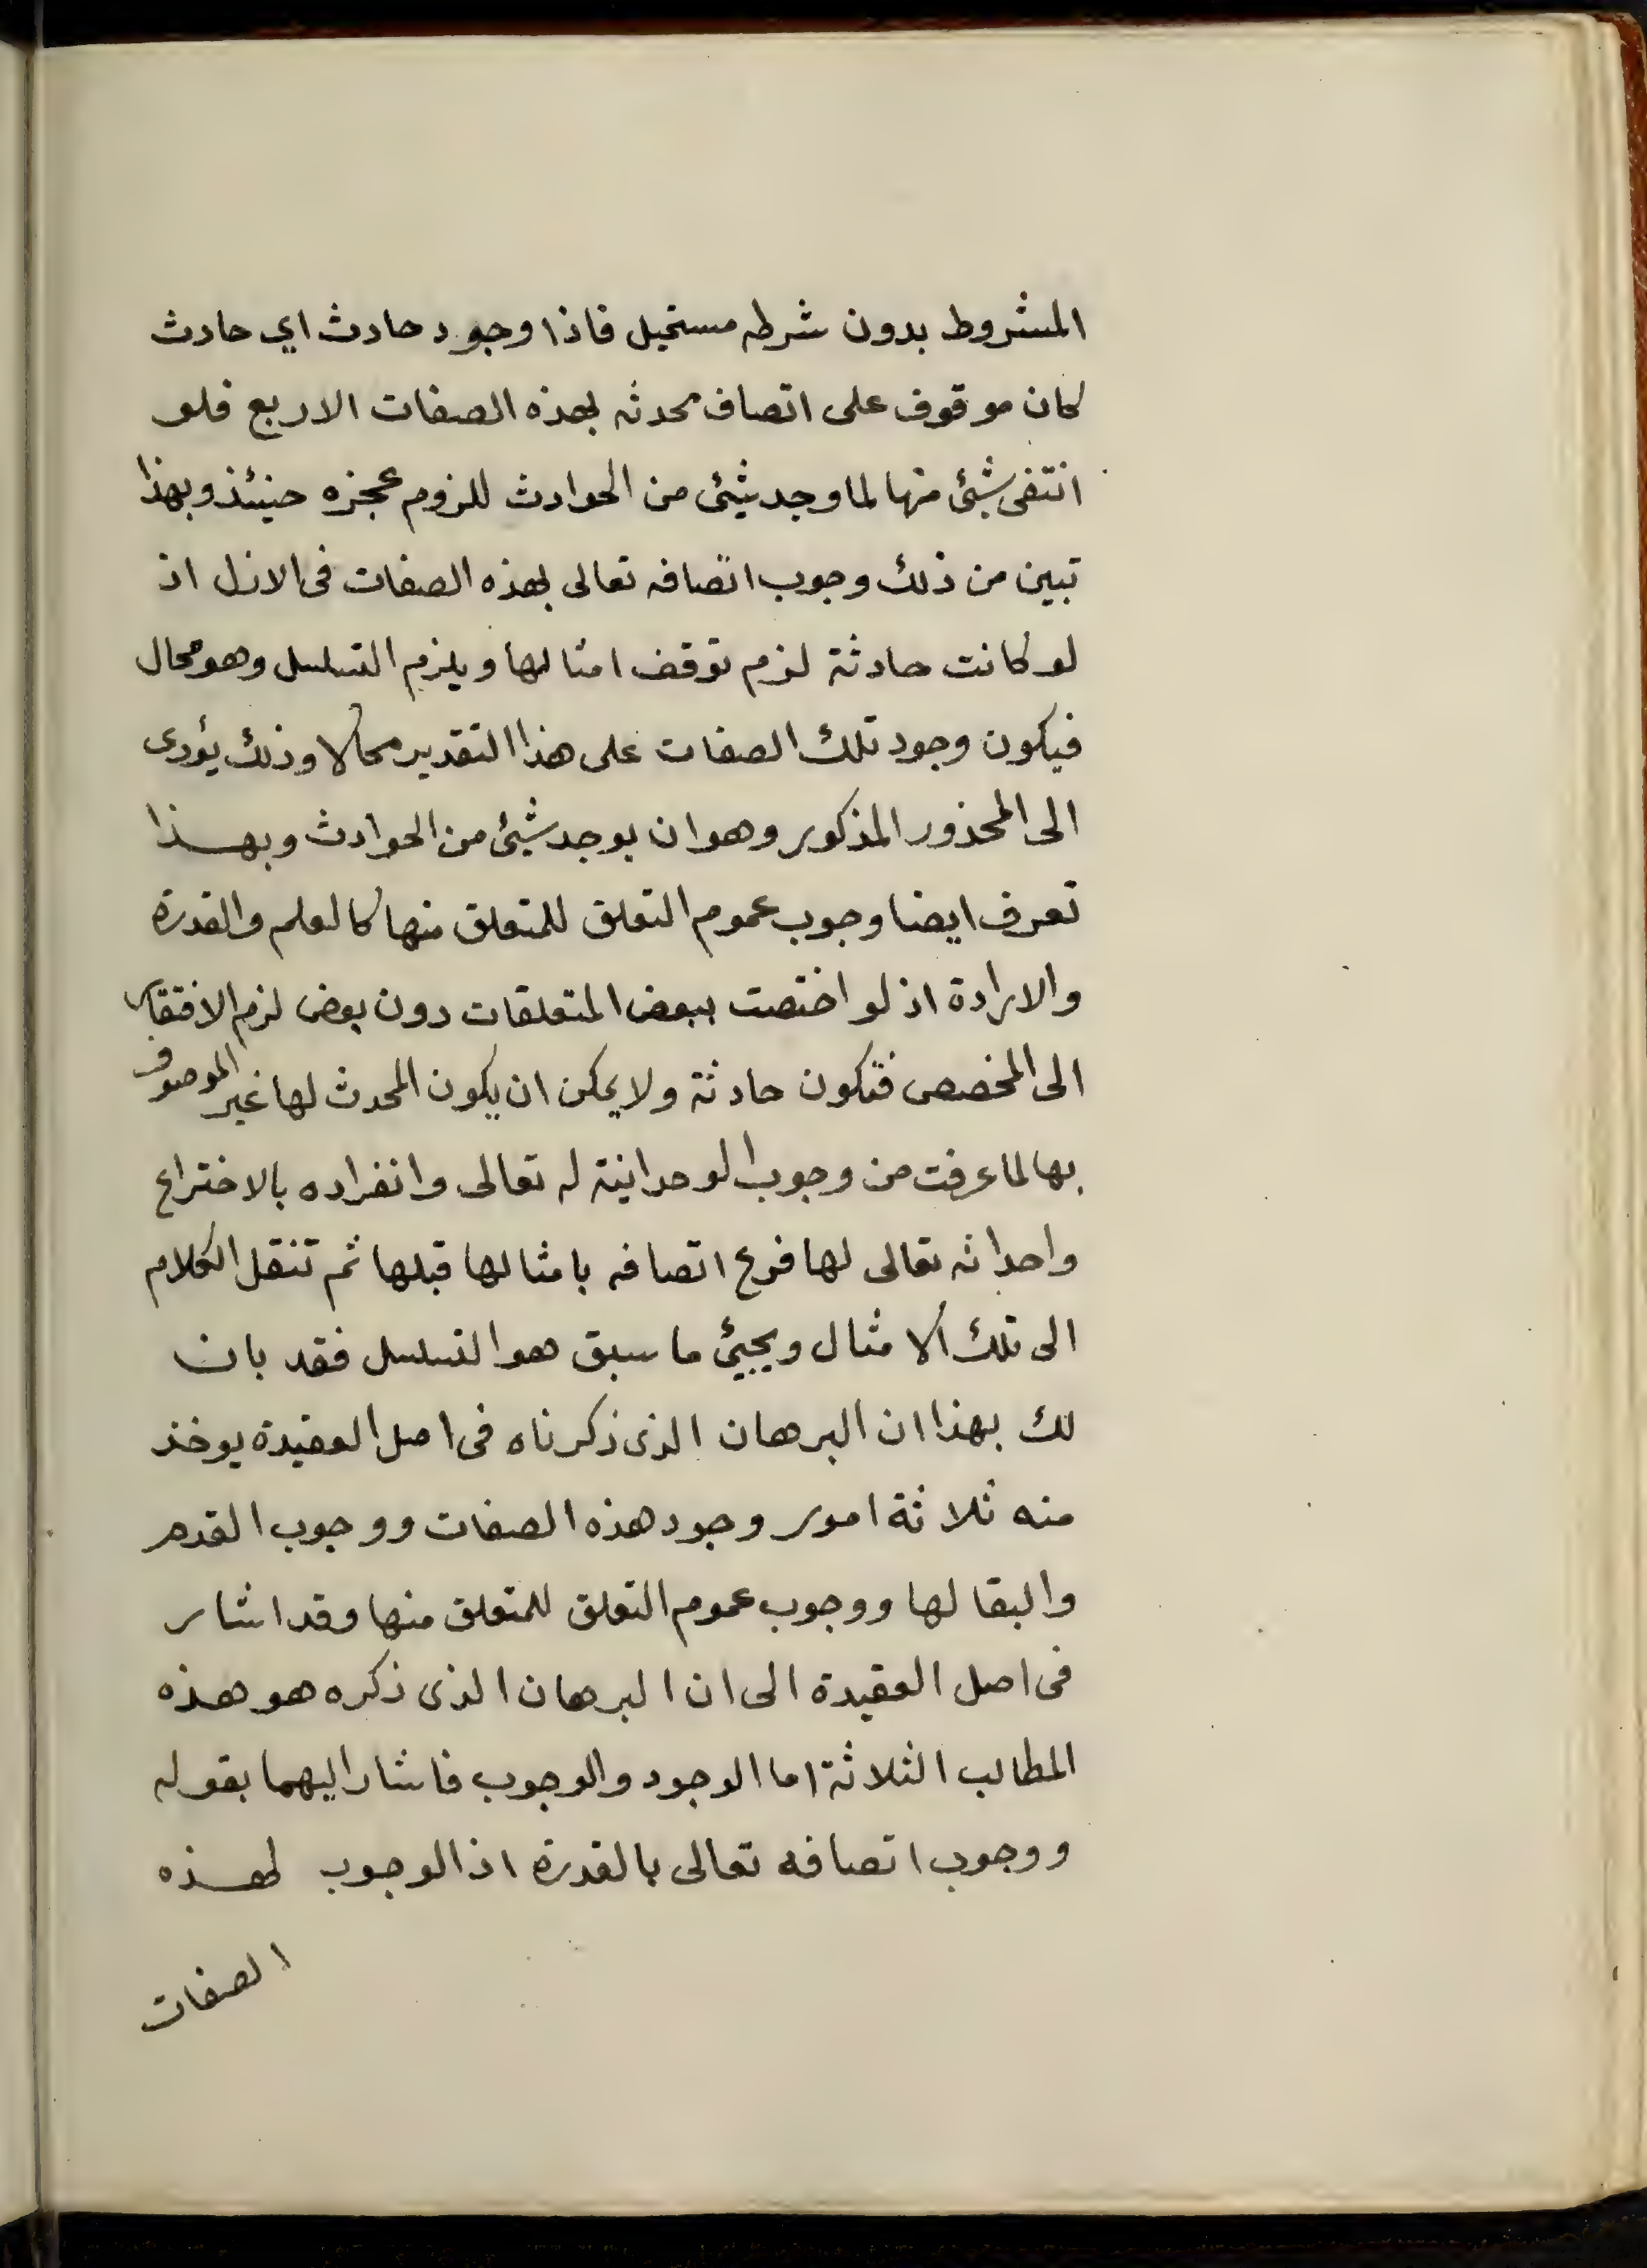 المشروط بدون شرطه مستحيل فاذا وجود حادث اي حادث
كان موقوف على اتصاف محدثه بهذه الصفات الاربع فلو
انتفى شئ منها لما وجد شئ من الحوادث للزوم عجزه حينئذ وبهذا
تبين من ذلك وجوب اتصافه تعالى بهذه الصفات فى الازل اذ
لو كانت حادثة لزم توقف امثالها ويلزم التسلسل وهو محال
فيكون وجود تلك الصفات على هذا التقدير محالا وذلك يؤدى
الى المحذور المذكور وهو ان يوجد شئ من الحوادث وبهذا
تعرف ايضا وجوب عموم التعلق للمتعلق منها كالعلم والقدرة
والارادة اذ لو اختصت ببعض المتعلقات دون بعض لزم الافتقار
الى المخصص فتكون حادثة ولا يمكن ان يكون المحدث لها غير الموصوف
بها لما عرفت من وجوب الوحدانية له تعالى وانفراده بالاختراع
واحداثه تعالى لها فرع اتصافه بامثالها قبلها ثم تنقل الكلام
الى تلك الامثال ويجيئ ما سبق هو التسلسل فقد بان
لك بهذا ان البرهان الذى ذكرناه فى اصل العقيدة يوخذ
منه ثلاثة امور وجود هذه الصفات ووجوب القدم
والبقا لها ووجوب عموم التعلق للمتعلق منها وقد اشار
فى اصل العقيدة الى ان البرهان الذى ذكره هو هذه
المطالب الثلاثة اما الوجود والوجوب فاشار اليهما بقوله
ووجوب اتصافه تعالى بالقدرة اذ الوجوب لهذه
الصفات